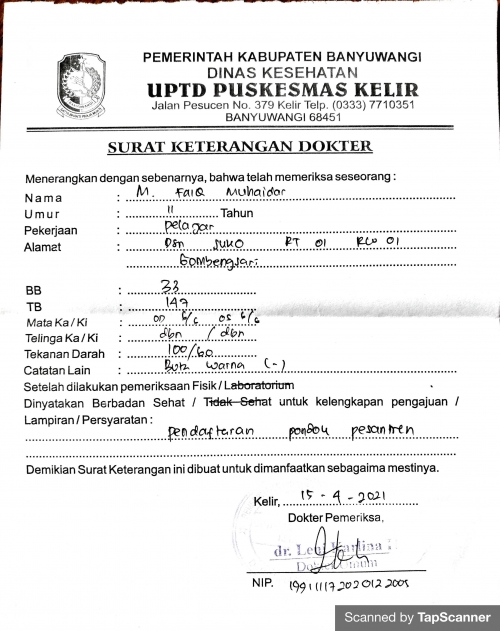 PEMERINTAH KABUPATEN BANYUWANGI
DINAS KESEHATAN
UPTD PUSKESMAS KELIR
Jalan Pesucen No. 379 Kelir Telp. (0333) 7710351
BANYUWANGI 68451
SURAT KETERANGAN DOKTER
Menerangkan dengan sebenarnya, bahwa telah memeriksa seseorang :
Nama : M. Faiq Muhaidor
Umur : 11 Tahun
Pekerjaan : pelajar
Alamat : Dsn SUKO RT 01 RW 01
Gombengsari
BB : 33
TB : 147
Mata Ka / Ki : OD 6/6 OS 6/6
Telinga Ka / Ki : dbn / dbn
Tekanan Darah : 100/60
Catatan Lain : Buta warna (-)
Setelah dilakukan pemeriksaan Fisik / Laboratorium
Dinyatakan Berbadan Sehat / Tidak Sehat untuk kelengkapan pengajuan /
Lampiran / Persyaratan :
pendaftaran pondok pesantren
Demikian Surat Keterangan ini dibuat untuk dimanfaatkan sebagaima mestinya.
Kelir, 15 - 4 - 2021
Dokter Pemeriksa,
dr. Leni
Dokter Umum
NIP. 19911117 202012 2005
Scanned by TapScanner